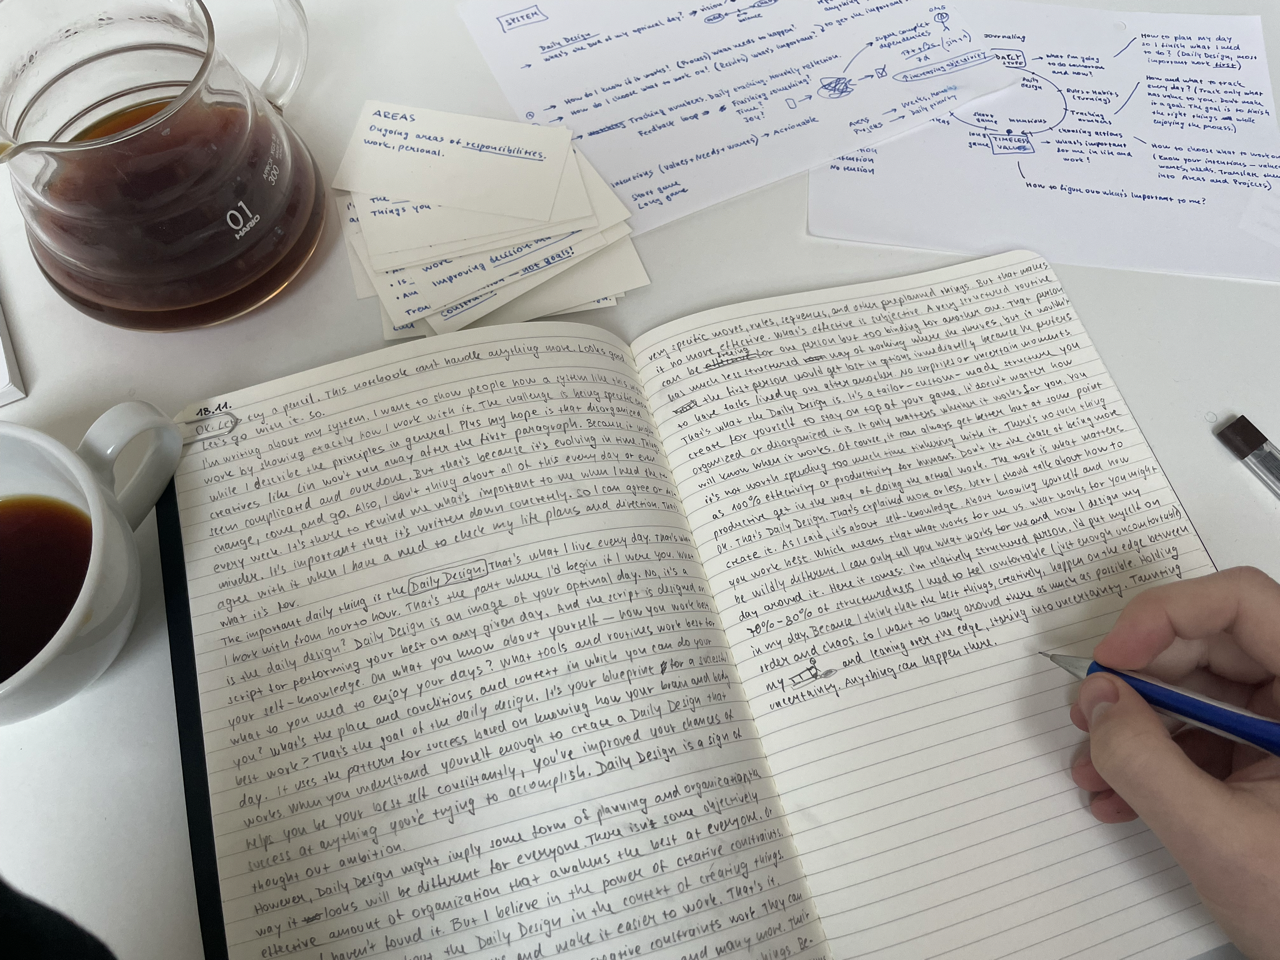 SYSTEM
Daily Design
What's the best of my optimal day? → vision
How do I know if it works? (Process) What needs to happen?
How do I choose what to work on? (Results) What's important?
to get the important
Tracking numbers, Daily tracking, Monthly reflection
Feedback loop → Finishing something?
Time?
Joy?
Intentions (values + needs + wants) → Actionable
Start game
Long game
super complex
dependencies
↑ increasing objectivity
Areas
Projects
Daily priority
Journaling
DAILY
What I'm going
to do tomorrow
and now?
Daily
Design
Rules + Habits
(Tuning)
Tracking
numbers
choosing actions
What's important
for me in life and
work?
TIMELESS
VALUES
How to plan my day
so I finish what I need
to do? (Daily Design, most
important work first)
How and what to track
every day? (Track only what
has value to you. Don't make
it a goal. The goal is to finish
the right things while
enjoying the process)
How to choose what to work on
(Know your intentions – values
wants, needs. Translate them
into Areas and Projects)
How to figure out what's important to me?
AREAS
Ongoing areas of responsibilities.
work, personal.
The
Things you
work
Am improving decision
not goals!
01
HARIO
300
18.11.
Ok. Let
cry a pencil. This notebook can't handle anything more. Looks good
Let's go with it. So.
I'm writing about my system. I want to show people how a system like this
work by showing exactly how I work with it. The challenge is being specific
while I describe the principles in general. Plus my hope is that disorganized
creatives like Lin won't run away after the first paragraph. Because it
seem complicated and overdone. But that's because it's evolving in time. Things
change, come, and go. Also, I don't thing about all of this every day or even
every week. It's there to remind me what's important to me when I need the
reminder. It's important that it's written down concretely. So I can agree or dis-
agree with it when I have a need to check my life plans and direction. That's
what it's for.
The important daily thing is the Daily Design. That's what I live every day. That's what
I work with from hour to hour. That's the part where I'd begin if I were you. What
is the daily design? Daily Design is an image of your optimal day. No, it's a
script for performing your best on any given day. And the script is designed on
your self-knowledge. On what you know about yourself — how you work best
what do you need to enjoy your days? What tools and routines work best for
you? What's the place and conditions and context in which you can do your
best work? That's the goal of the daily design. It's your blueprint for a successful
day. It uses the pattern for success based on knowing how your brain and body
works. When you understand yourself enough to create a Daily Design that
helps you be your best self consistantly, you've improved your chances of
success at anything you're trying to accomplish. Daily Design is a sign of
thought out ambition.
However, Daily Design might imply some form of planning and organization
way it looks will be different for everyone. There isn't some objectively
effective amount of organization that awakens the best at everyone. Or
I haven't found it. But I believe in the power of creative constraints.
the Daily Design in the context of creating things.
and make it easier to work. That's it.
creative constraints work. They can
and many more. Their
things. Be-
very specific moves, rules, sequences, and other preplanned things. But that makes
it no more effective. What's effective is subjective. A very structured routine
can be freeing for one person but too binding for another one. That person
has much less structured way of working where he thrives, but it wouldn't
the first person would get lost in options immediately because he prefers
to have tasks lined up one after another. No surprises or uncertain moments
That's what the Daily Design is. It's a tailor-custom-made structure you
create for yourself to stay on top of your game. It doesn't matter how
organized or disorganized it is. It only matters whether it works for you. You
will know when it works. Of course, it can always get better but at some point
it's not worth spending too much time tinkering with it. There's no such thing
as 100% effectivity or productivity for humans. Don't let the chase of being more
productive get in the way of doing the actual work. The work is what matters.
Ok. That's Daily Design. That's explained more or less. Next I should talk about how to
create it. As I said, it's about self-knowledge. About knowing yourself and how
you work best which means that what works for me vs what works for you might
be wildly different. I can only tell you what works for me and how I design my
day around it. Here it comes: I'm relatively structured person. I'd put myself on
70%-80% of structuredness. I need to feel comfortable (just enough uncomfortable)
in my day. Because I think that the best things, creatively, happen on the edge between
order and chaos. So I want to hang around there as much as possible. Holding
my and leaning over the edge, staring into uncertainty. Taunting
uncertainty. Anything can happen there.